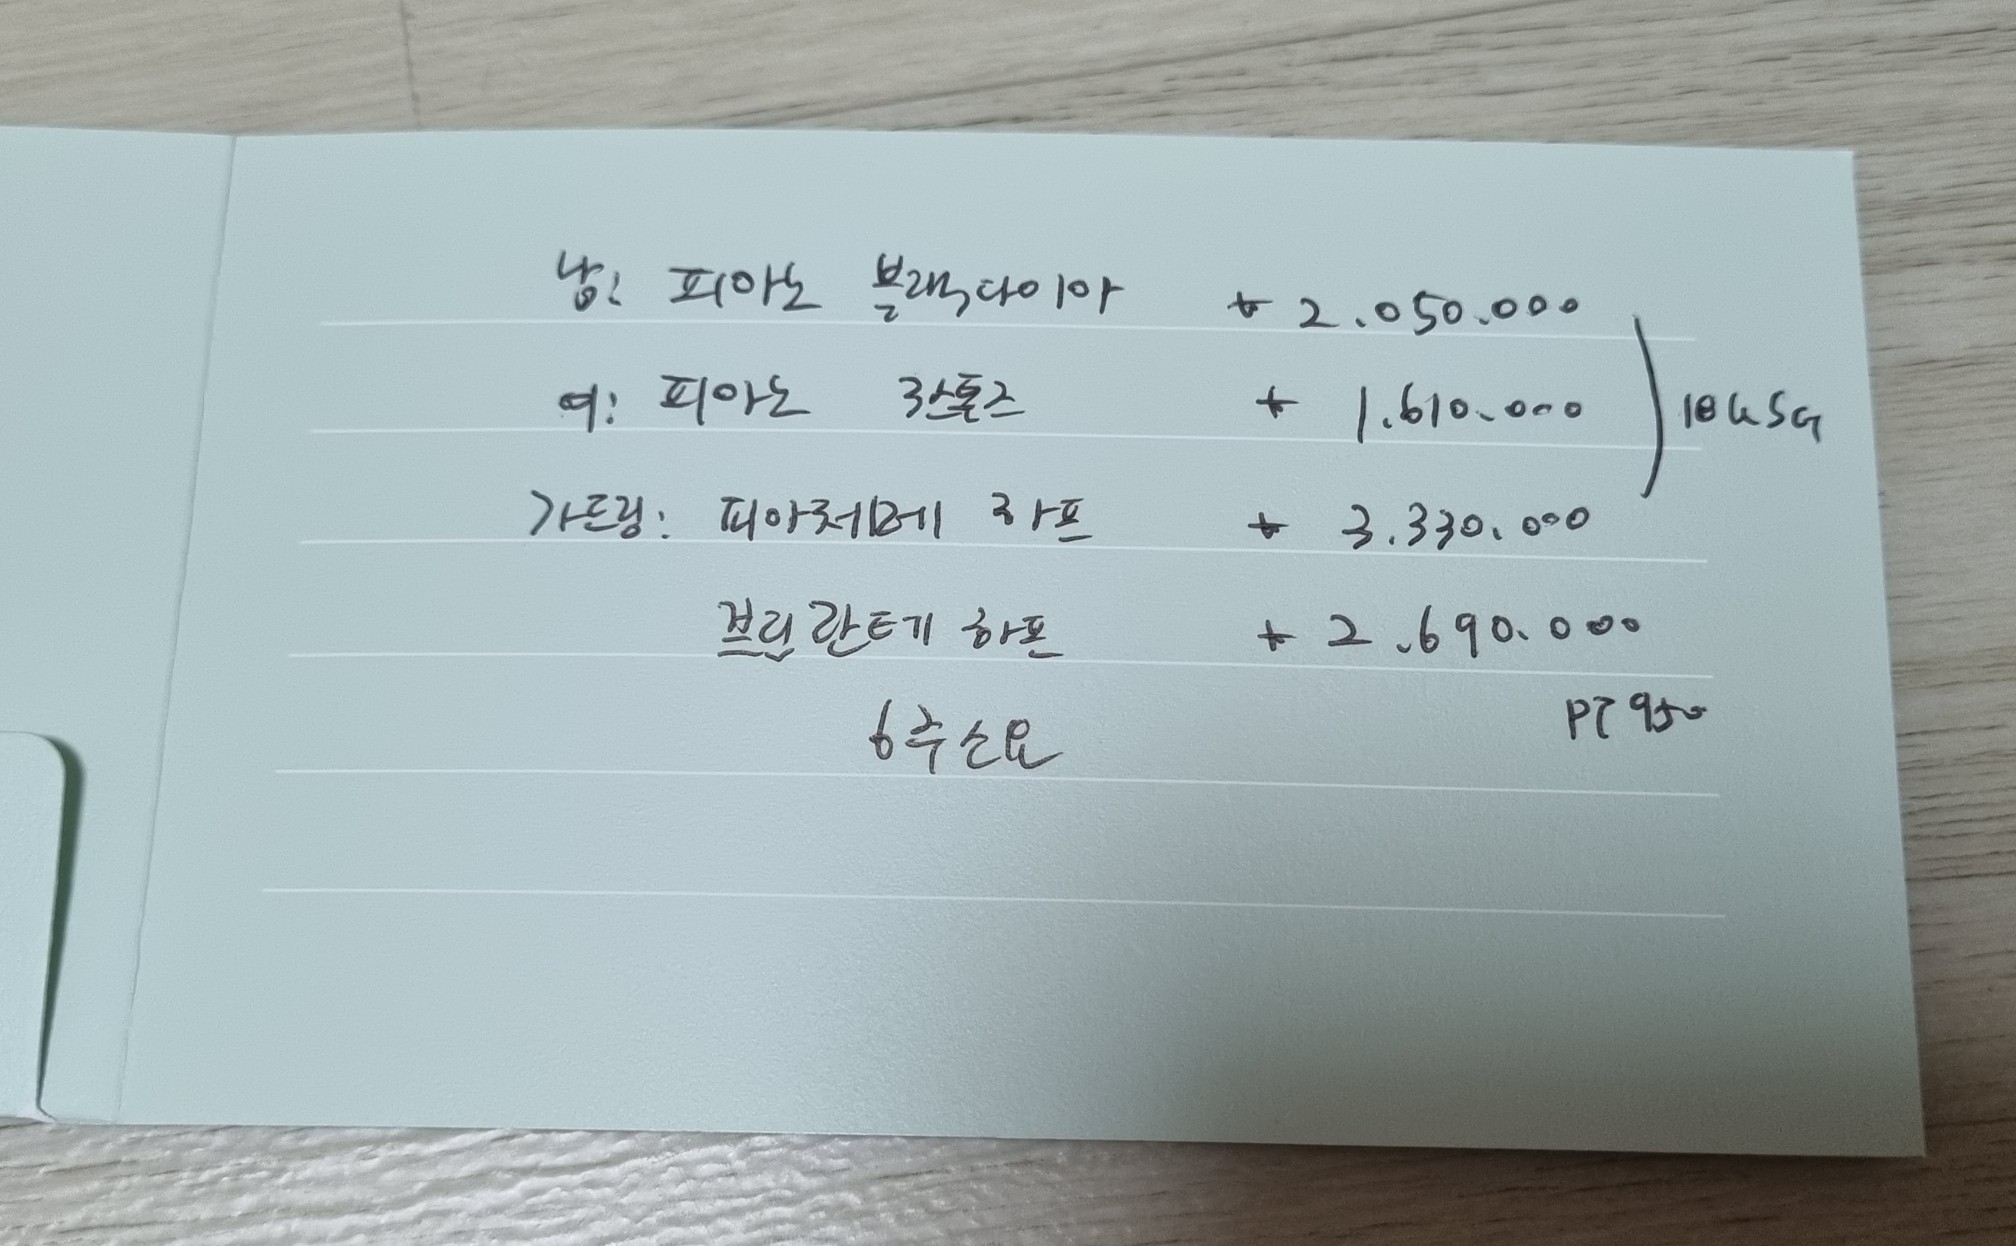 남: 피아노 블랙다이아 ₩ 2.050.000
여: 피아노 3스톤즈 ₩ 1.610.000
18K SG
가드링: 피아체메 하프 ₩ 3.330.000
브리란테기 하프 ₩ 2.690.000
PT 950
6주 소요